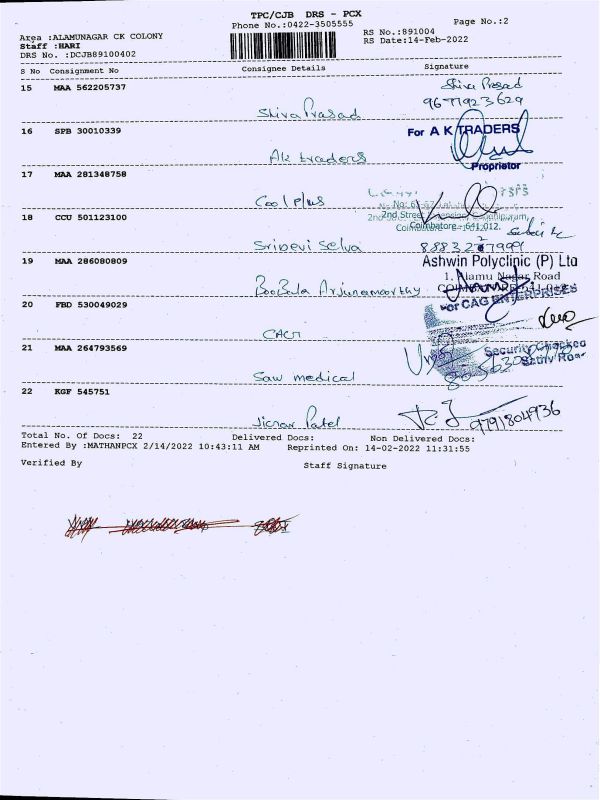 TPC/CJB DRS - PCX
Phone No.:0422-3505555
Page No.:2
Area :ALAMUNAGAR CK COLONY
Staff :HARI
DRS No. :DCJB89100402
RS No.:891004
RS Date:14-Feb-2022
S No Consignment No Consignee Details Signature
15 MAA 562205737 Shiva Prasad Shiva Prasad
9677923629
16 SPB 30010339 Ak traders For A K TRADERS
Proprietor
17 MAA 281348758 Cool Plus
2nd Street
Coimbatore - 641 012.
18 CCU 501123100 Sridevi Selva
19 MAA 286080809 BooBala Arjunamoorthy Ashwin Polyclinic (P) Ltd
1, Alamu Nagar Road
20 FBD 530049029 CAG For CAG ENTERPRISES
21 MAA 264793569 Saw medical Security Checked
22 KGF 545751 Jignar Patel 9791804936
Total No. Of Docs: 22 Delivered Docs: Non Delivered Docs:
Entered By :MATHANPCX 2/14/2022 10:43:11 AM Reprinted On: 14-02-2022 11:31:55
Verified By Staff Signature